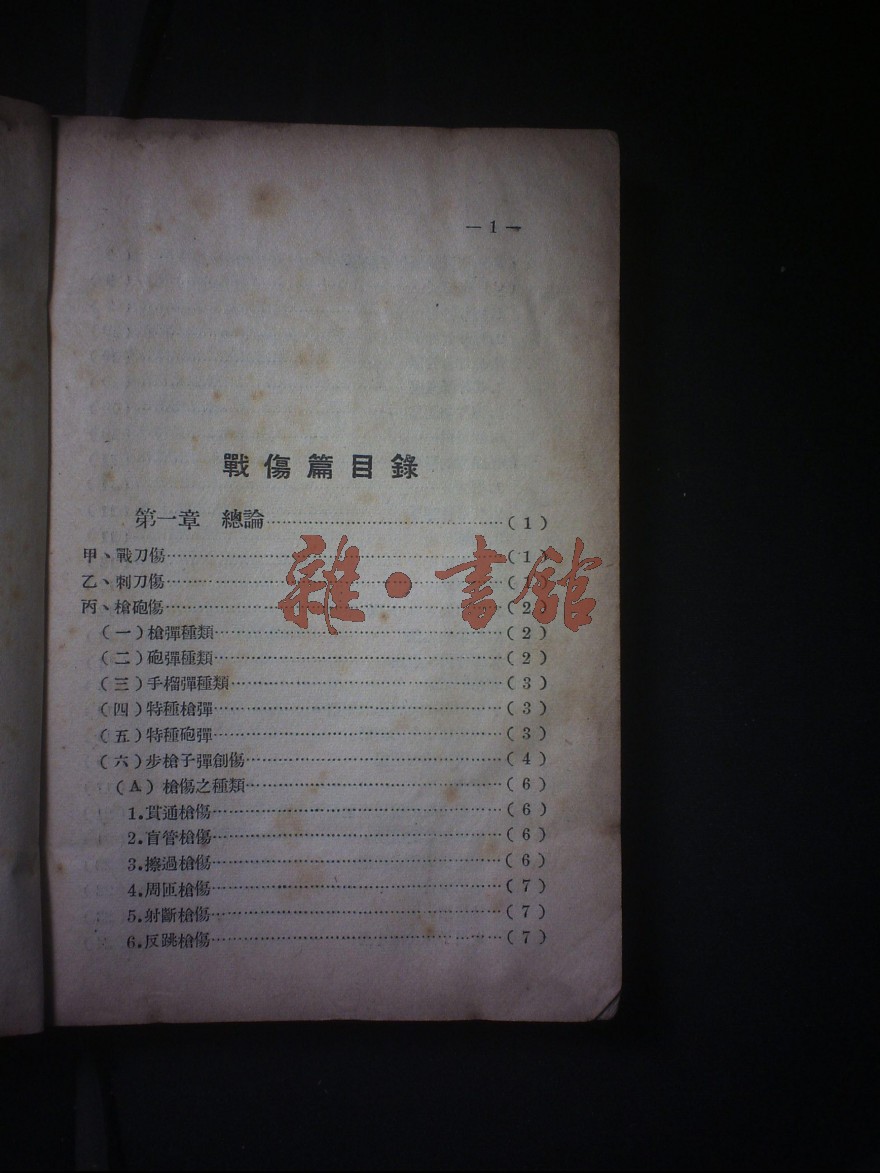 — 1 —
戰傷篇目錄
第一章 總論……………………(1)
甲、戰刀傷……………………(1)
乙、刺刀傷……………………
丙、槍砲傷……………………(2)
(一)槍彈種類……………………(2)
(二)砲彈種類……………………(2)
(三)手榴彈種類……………………(3)
(四)特種槍彈……………………(3)
(五)特種砲彈……………………(3)
(六)步槍子彈創傷……………………(4)
(A)槍傷之種類……………………(6)
1.貫通槍傷……………………(6)
2.盲管槍傷……………………(6)
3.擦過槍傷……………………(6)
4.周匝槍傷……………………(7)
5.射斷槍傷……………………(7)
6.反跳槍傷……………………(7)
雜·書館